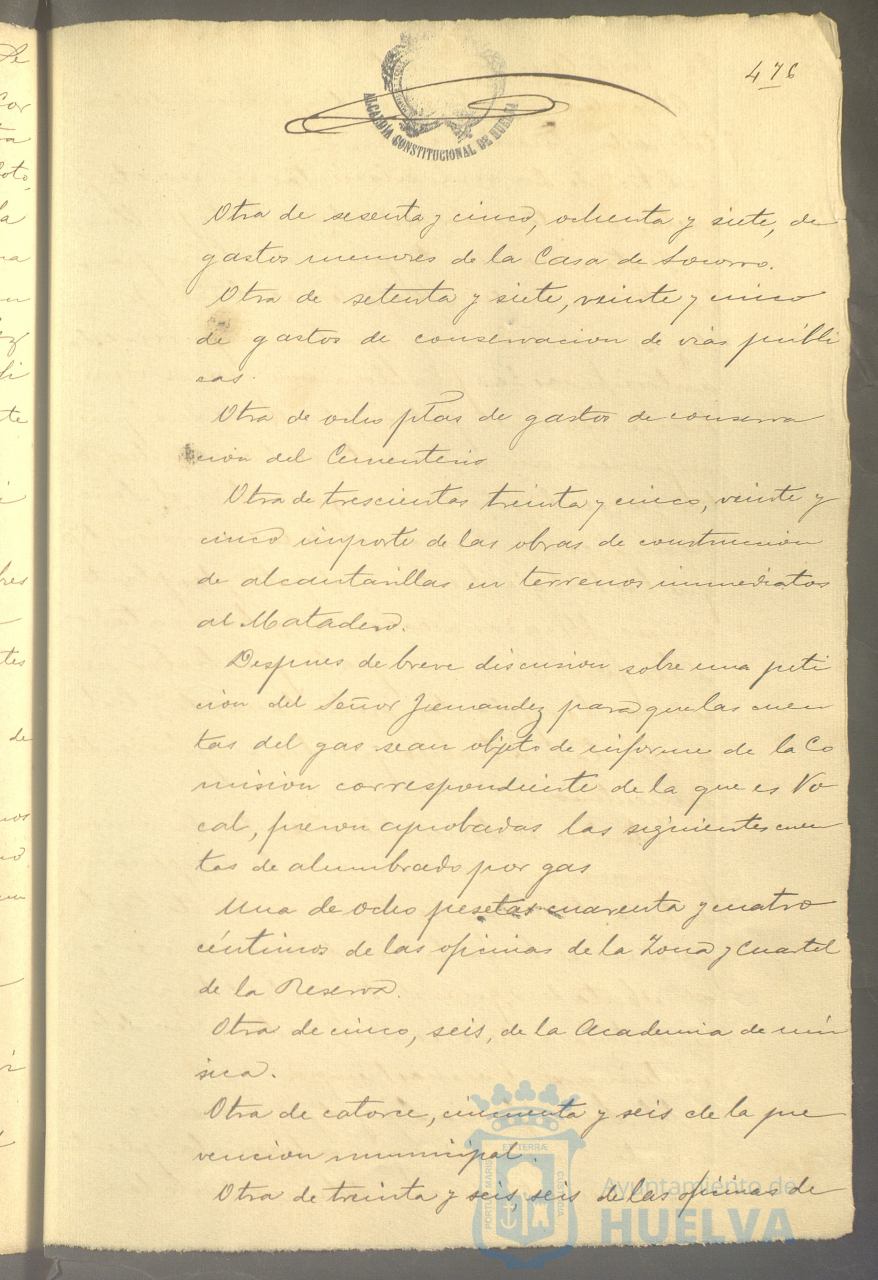 476
ALCALDÍA CONSTITUCIONAL DE HUELVA
Otra de sesenta y cinco, ochenta y siete, de
gastos menores de la Casa de Socorro.
Otra de setenta y siete, veinte y cinco
de gastos de conservacion de vias públi
cas.
Otra de ocho ptas de gastos de conserva
cion del Cementerio
Otra de trescientas treinta y cinco, veinte y
cinco importe de las obras de construccion
de alcantarillas en terrenos inmediatos
al Matadero.
Despues de breve discusion sobre una peti
cion del Señor Hernandez para que las cuen
tas del gas sean objeto de informe de la Co
mision correspondiente de la que es Vo
cal, fueron aprobadas las siguientes cuen
tas de alumbrado por gas
Una de ocho pesetas cuarenta y cuatro
céntimos de las oficinas de la Zona y Cuartel
de la Reserva.
Otra de cinco, seis, de la Academia de mú
sica.
Otra de catorce, cincuenta y seis de la pre
vencion municipal.
Otra de treinta y seis, seis de las oficinas de
PORTUS MARIS ET TERRÆ CUSTODIA
Ayuntamiento de
HUELVA